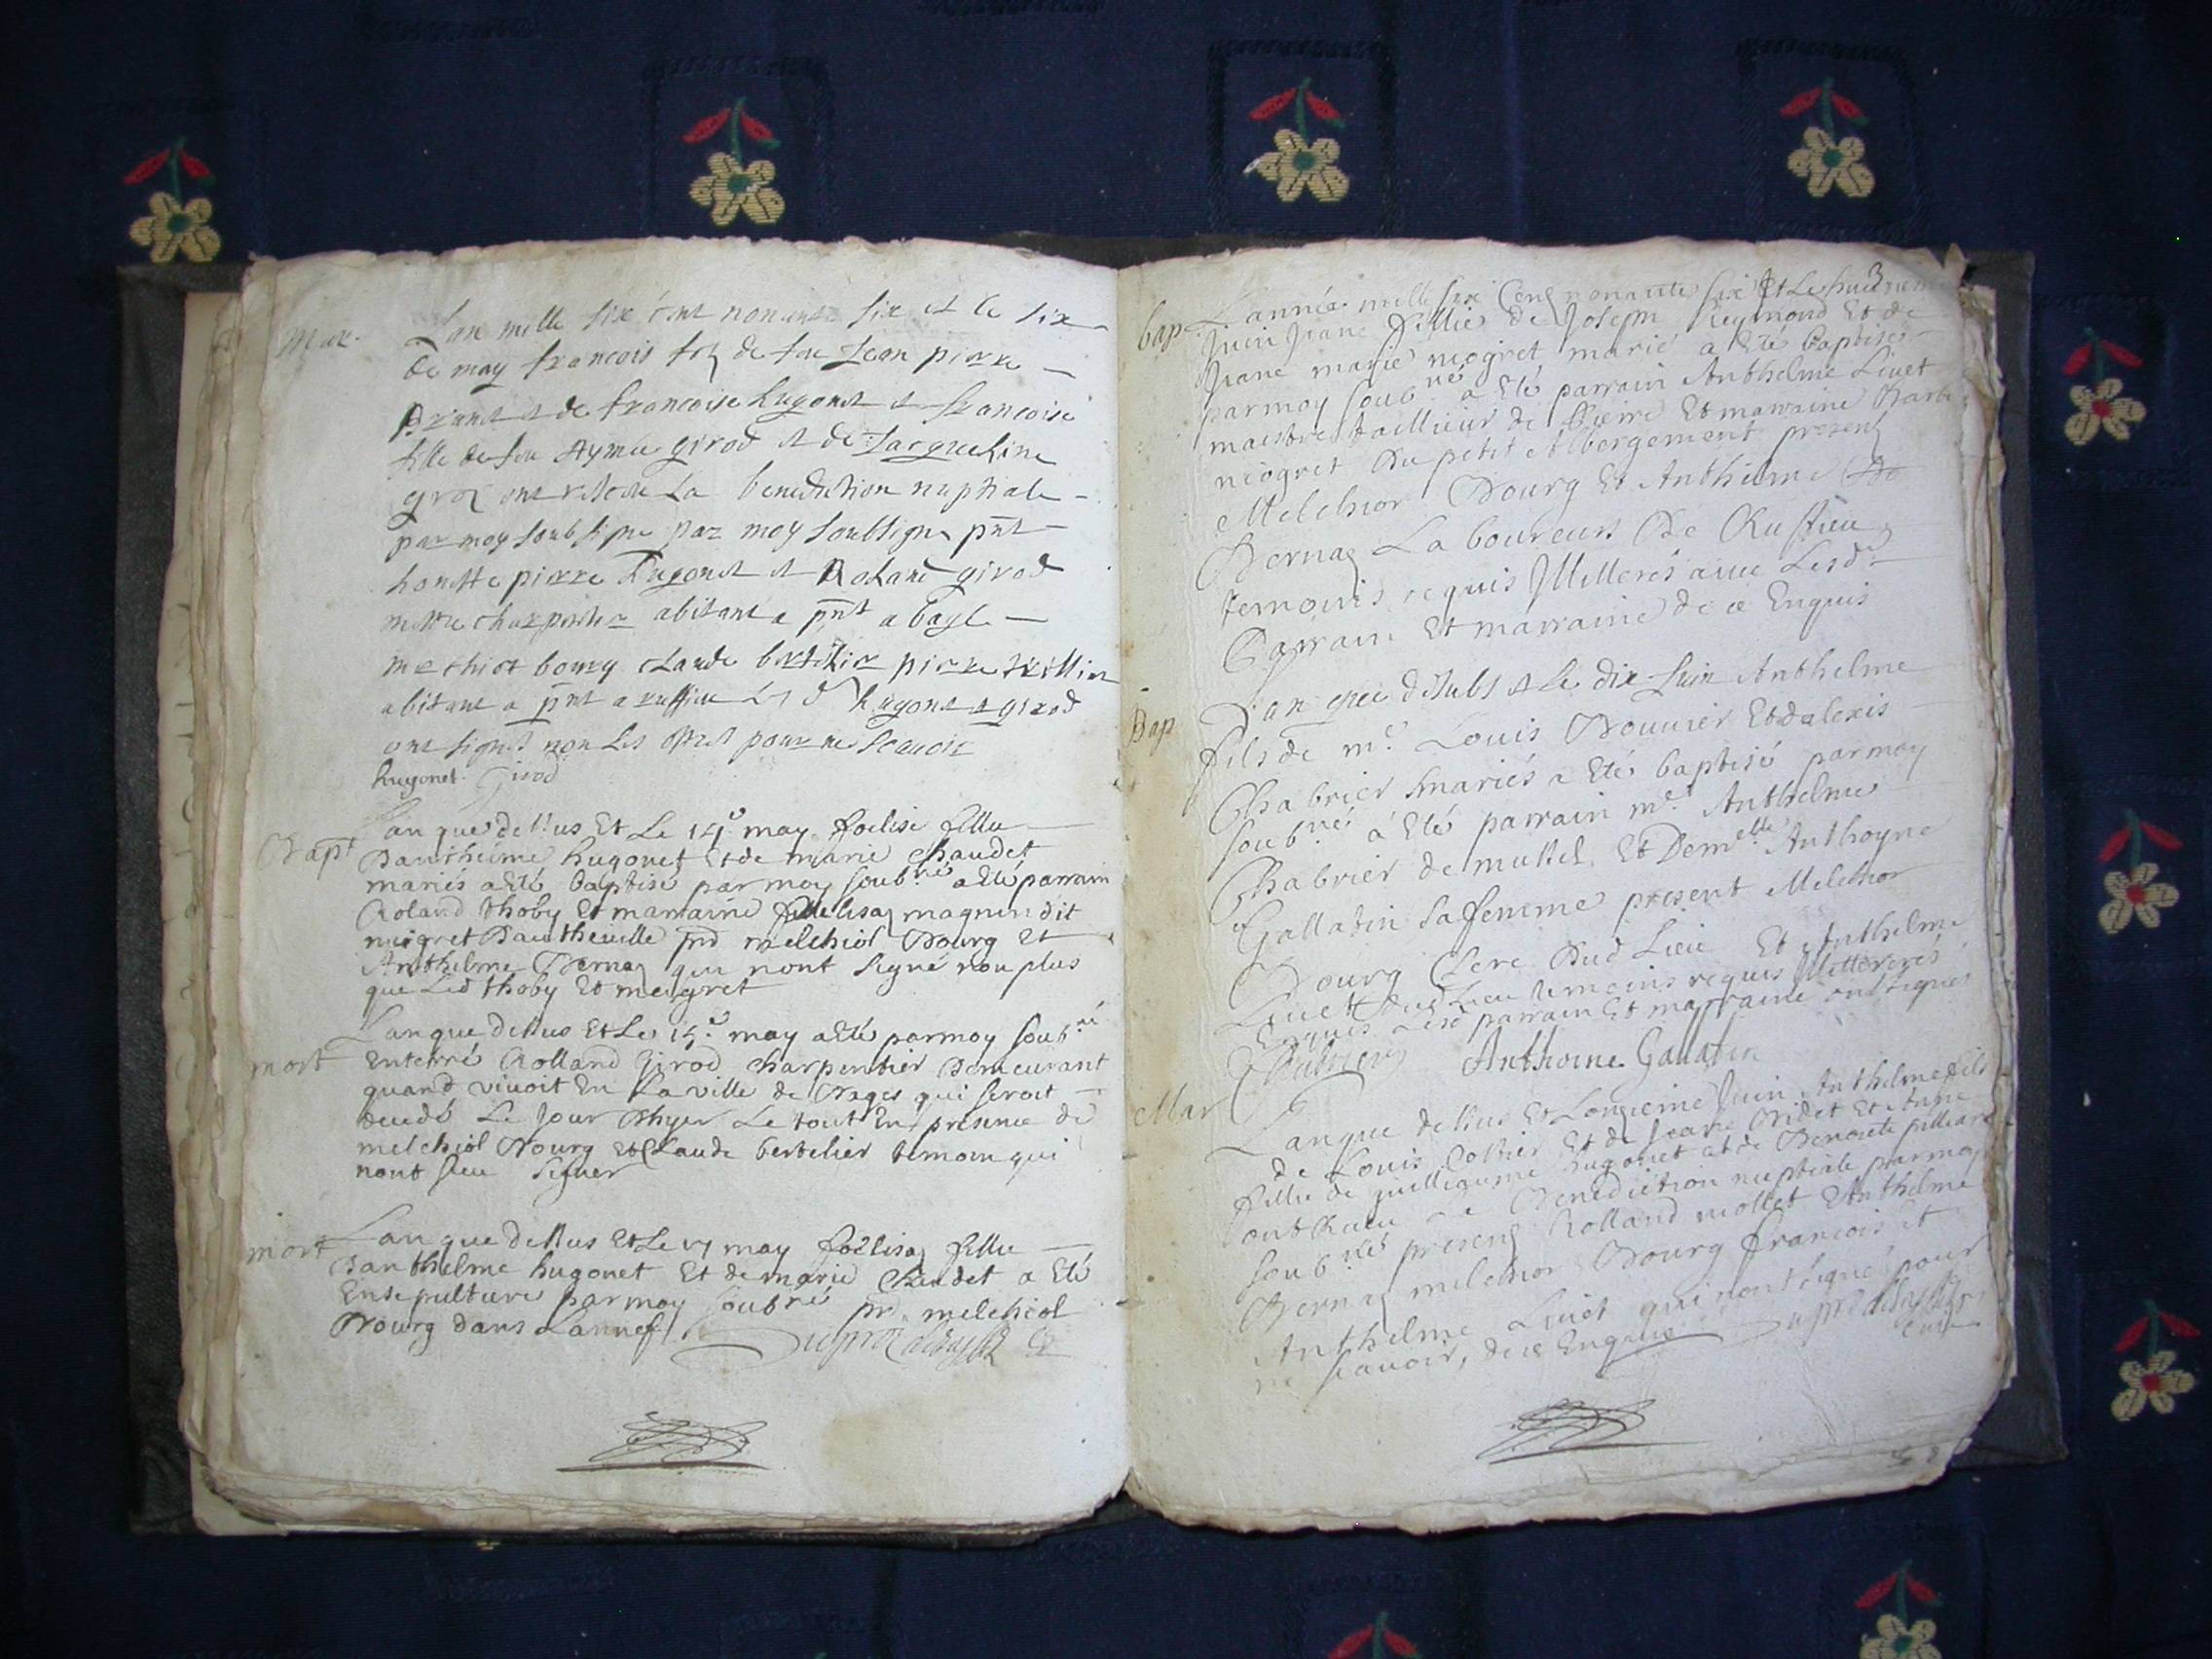 Mar.
Lan mille six cent nonante six et le six
de may francois filz de feu Jean pierre
et de francoise hugonet et francoise
fille de feu Aymee girod et de Jacqueline
groz ont la benediction nuptiale
par moy soubsigne par moy soubsigne pnt
honeste pierre hugonet et Roland girod
abitant a pnt a bagé
melchiot bourg claude bertelier pierre
abitant a pnt a ruffieu Les d hugonet et girod
ont signés non les pour ne scavoir
hugonet. Girod
Bapt
Lan que dessus Et Le 14e may foelise fillie
Danthelme hugonet Et de marie Chaudet
mariés a Eté baptisé par moy soub.né a Eté parrain
Roland thoby Et marraine magnin dit
meigret pnd melchiol Bourg Et
Anthelme Bernaz qui nont signé non plus
que Led thoby Et meigret
mort
Lan que dessus Et Le 15e may a Eté par moy soub.né
Enterré Rolland Girod Charpentier Demeurant
quand vivoit En La ville de Bages qui seroit
decedé Le Jour Dhyer Le tout En presence de
melchiol Bourg Et Claude bertelier temoin qui
nont sceu signer
mort
Lan que dessus Et Le may foelisaz fillie
Danthelme hugonet Et de marie Chaudet a Eté
Ensepulturé par moy soub.né pnd melchiol
Bourg dans La nef
3
bap
L'année mille six Cent nonante six Et Le huictieme
Juin Jeane fillie de Joseph Reymond Et de
Jeane marie niogret marié a Eté baptisée
par moy soub.né a Eté parrain Anthelme Livet
maistre taillieur de Pierre Et marraine Barbe
niogret Du petit Abergement presentz
Melchior Bourg Et Anthelme
Bernaz Laboureurs De Ruffieu
temoins requis Illiterés avec Lesd
Parrain Et marraine de ce Enquis
Bap
L'an que dessubs et Le dix Juin Anthelme
fils de me Louis Bouvier Et dalexis
Chabrier mariés a Eté baptisé par moy
soub.né a Eté parrain me Anthelme
Chabrier de mussel Et Demelle Anthoyne
Gallatin sa femme present Melchior
Bourg Clerc Dud Lieu Et Anthelme
Livet dud Lieu temoins requis Illiterés
Enquis Lesd parrain Et marraine ont signés
Chabrier Anthoine Gallatin
Mar
Lan que dessus Et Lonzieme Juin Anthelme fils
de Louis Et de Jeane Et Anne
fillie de guilliaume hugonet et de Benoite
ont Receu La Benediction nuptiale par moy
soub.né presentz Rolland mollet Anthelme
Bernaz melchior Bourg francois Et
Anthelme Livet qui nont signé pour
ne scavoir, de ce Enquis
curé